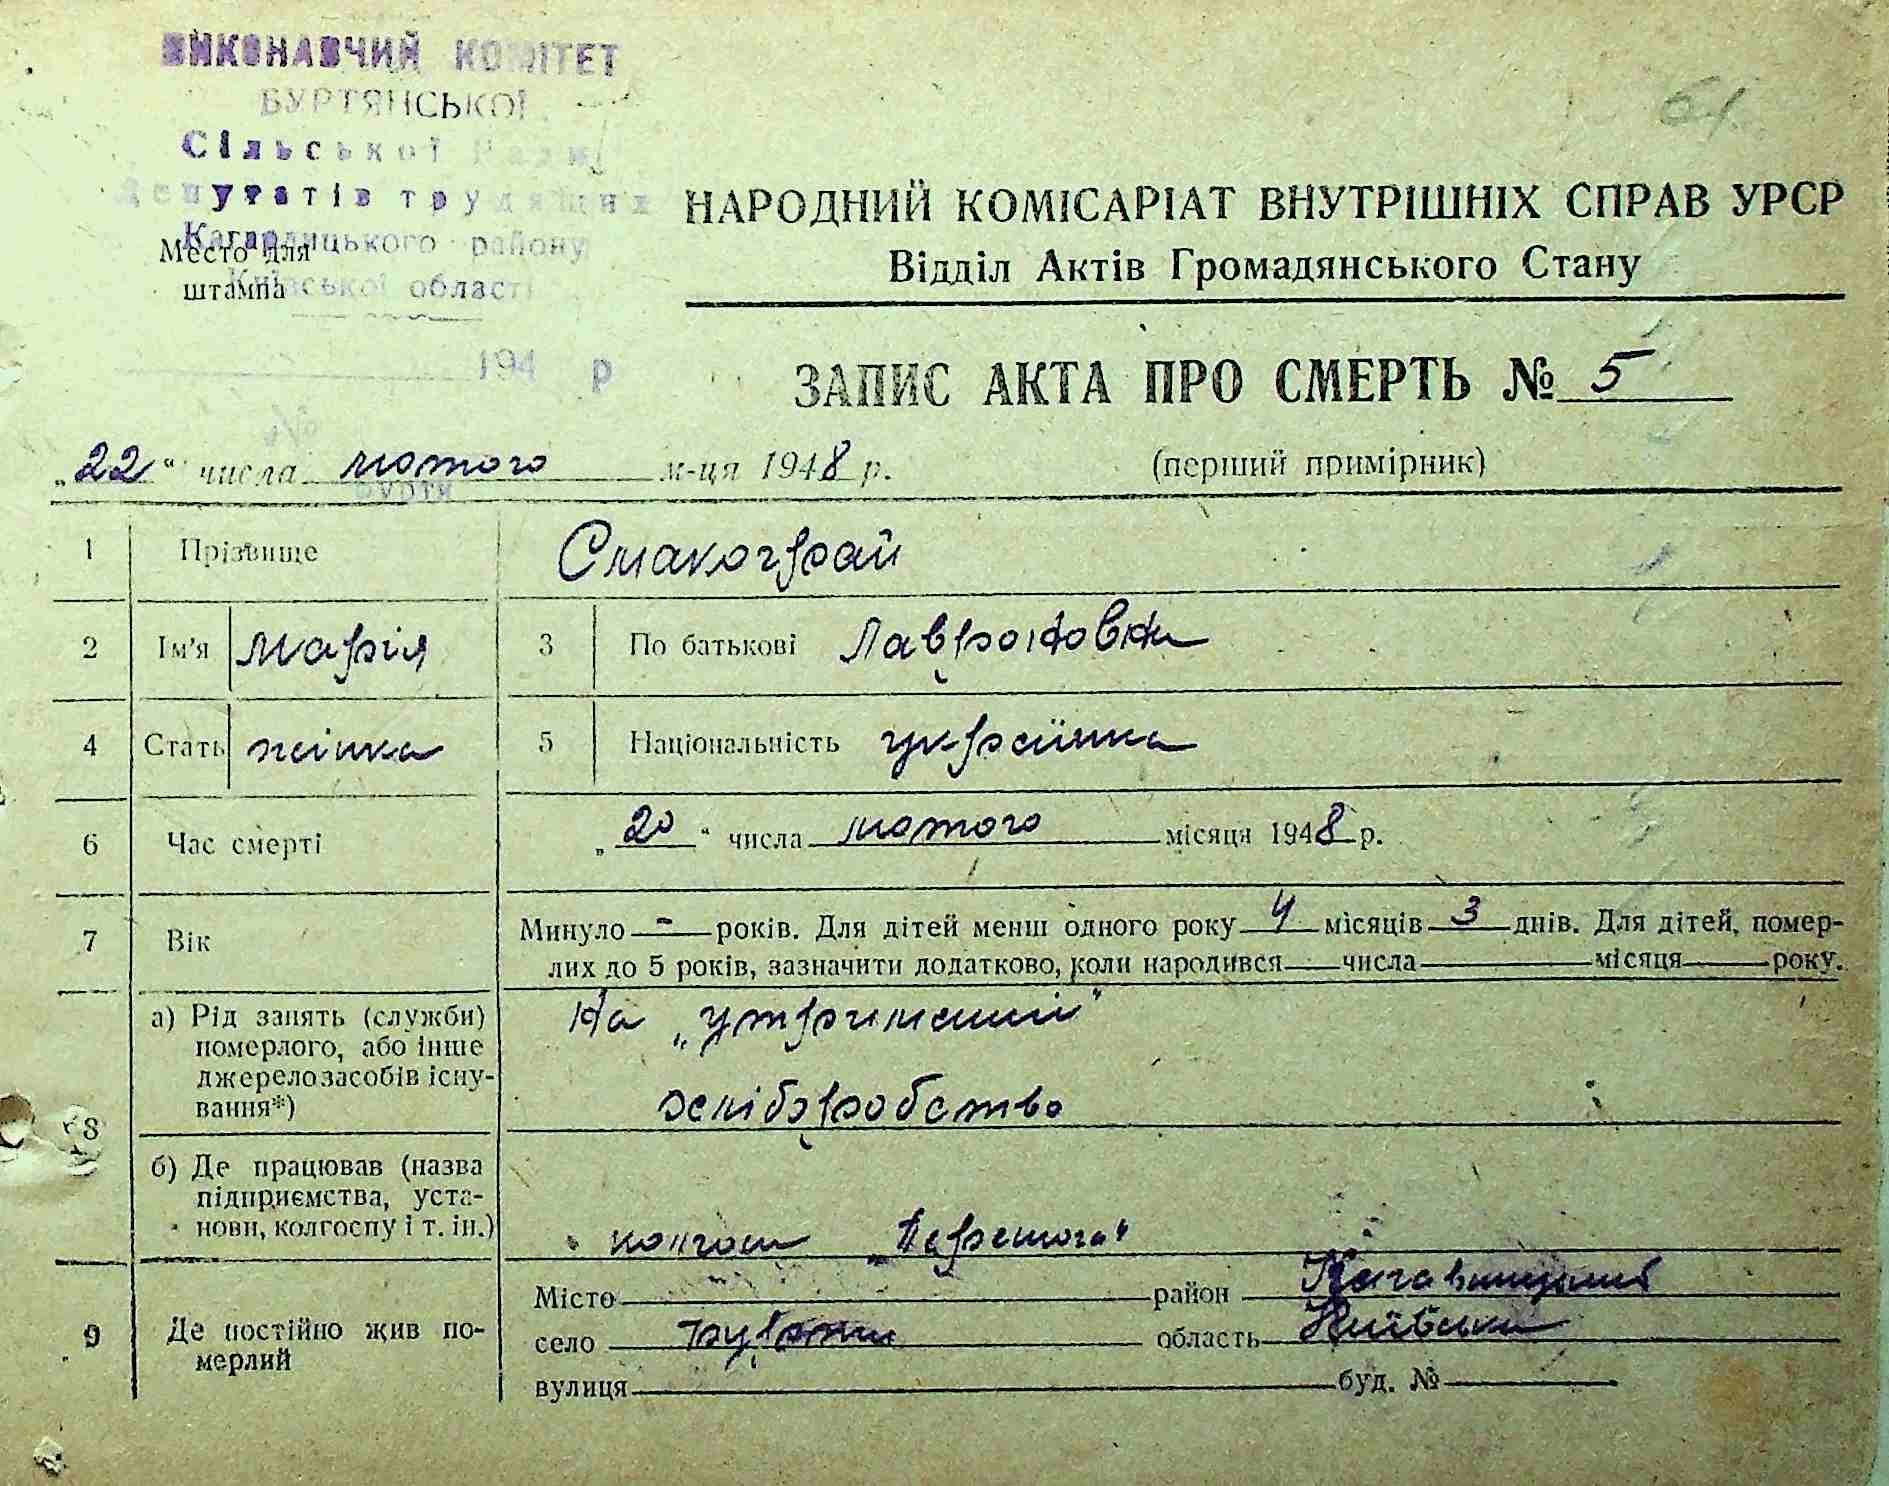 ВИКОНАВЧИЙ КОМІТЕТ
БУРТЯНСЬКОЇ
Сільської Ради
Депутатів трудящих
Кагарлицького району
Київської області
Место для
штампа
194 р
61
НАРОДНИЙ КОМІСАРІАТ ВНУТРІШНІХ СПРАВ УРСР
Відділ Актів Громадянського Стану
ЗАПИС АКТА ПРО СМЕРТЬ № 5
"22" числа лютого м-ця 1948 р. (перший примірник)
1 Прізвище Смакограй
2 Ім'я Марія 3 По батькові
4 Стать жінка 5 Національність українка
6 Час смерті "20" числа лютого місяця 1948 р.
7 Вік Минуло - років. Для дітей менш одного року 4 місяців 3 днів. Для дітей, помер-
лих до 5 років, зазначити додатково, коли народився числа місяця року.
8 а) Рід занять (служби)
померлого, або інше
джерело засобів існу-
вання*)
На "утриманні"
хліборобство
б) Де працював (назва
підприємства, уста-
нови, колгоспу і т. ін.)
колгосп "Перемога"
9 Де постійно жив по-
мерлий
Місто район
село Бурти область Київська
вулиця буд. №